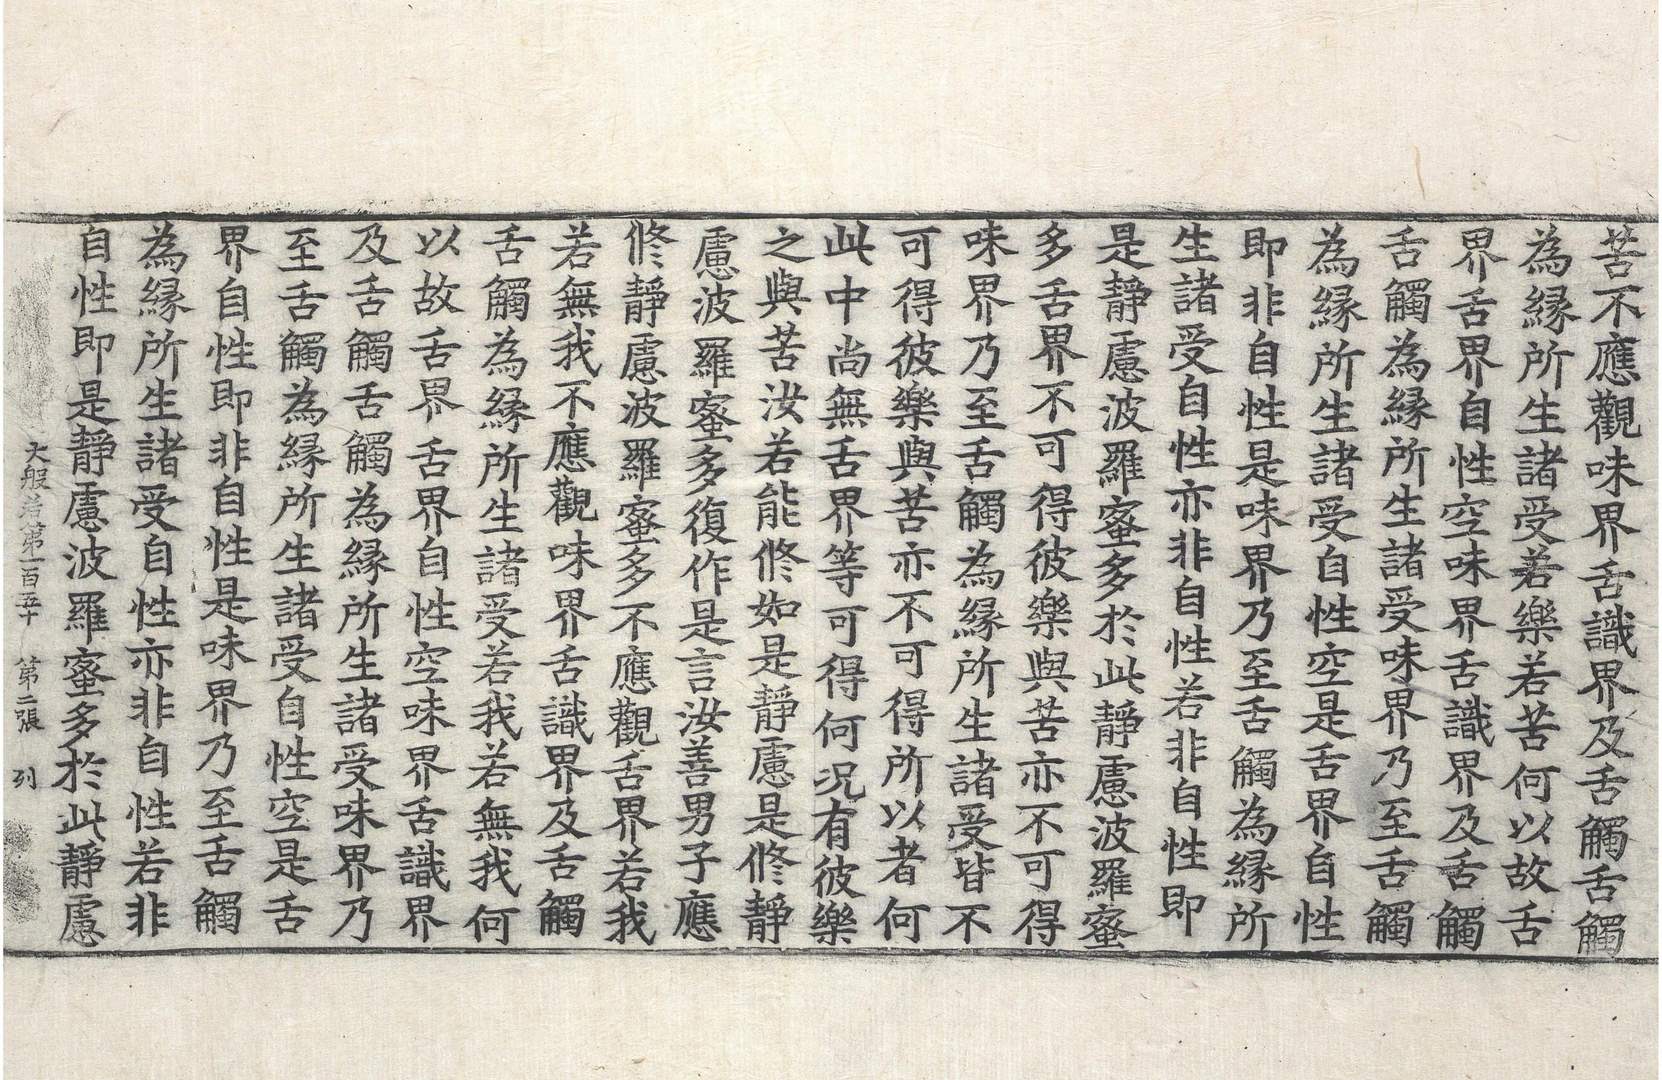 苦不應觀味界舌識界及舌觸舌觸
為縁所生諸受若樂若苦何以故舌
界舌界自性空味界舌識界及舌觸
舌觸為縁所生諸受味界乃至舌觸
為縁所生諸受自性空是舌界自性
即非自性是味界乃至舌觸為縁所
生諸受自性亦非自性若非自性即
是靜慮波羅蜜多於此靜慮波羅蜜
多舌界不可得彼樂與苦亦不可得
味界乃至舌觸為縁所生諸受皆不
可得彼樂與苦亦不可得所以者何
此中尚無舌界等可得何况有彼樂
之與苦汝若能修如是靜慮是修靜
慮波羅蜜多復作是言汝善男子應
修靜慮波羅蜜多不應觀舌界若我
若無我不應觀味界舌識界及舌觸
舌觸為縁所生諸受若我若無我何
以故舌界舌界自性空味界舌識界
及舌觸舌觸為縁所生諸受味界乃
至舌觸為縁所生諸受自性空是舌
界自性即非自性是味界乃至舌觸
為縁所生諸受自性亦非自性若非
自性即是靜慮波羅蜜多於此靜慮
大般若第一百五十 第二張 列